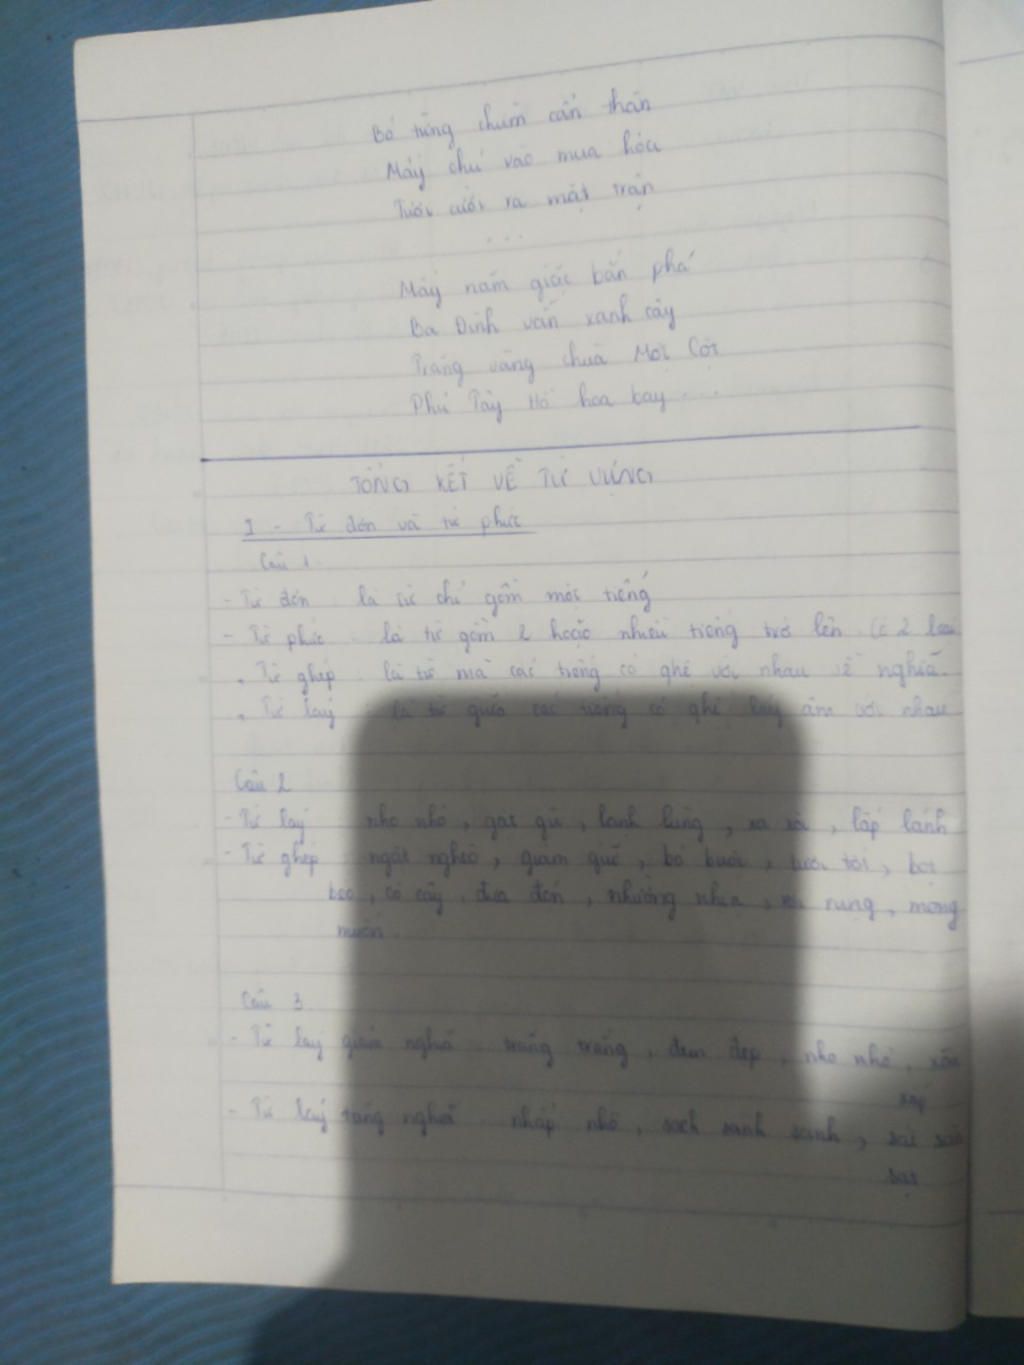 Bó từng chùm cẩn thận
Mấy chú vào mua hoa
Tươi cười ra mặt trận
...
Mấy năm giặc bắn phá
Ba Đình vẫn xanh cây
Trăng vàng chùa Một Cột
Phủ Tây Hồ hoa bay...
TỔNG KẾT VỀ TỪ VỰNG
I - Từ đơn và từ phức
Câu 1
- Từ đơn: là từ chỉ gồm một tiếng
- Từ phức: là từ gồm 2 hoặc nhiều tiếng trở lên. Có 2 loại
. Từ ghép: là từ mà các tiếng có qhệ với nhau về nghĩa.
. Từ láy: là từ giữa các tiếng có qhệ láy âm với nhau
Câu 2
- Từ láy: nho nhỏ, gật gù, lạnh lùng, xa xôi, lấp lánh
- Từ ghép: ngặt nghèo, giam giữ, bó buộc, tươi tốt, bọt
bèo, cỏ cây, đưa đón, nhường nhịn, rơi rụng, mong
muốn.
Câu 3.
- Từ láy giảm nghĩa: trăng trắng, đem đẹp, nho nhỏ, xôm
xốp
- Từ láy tăng nghĩa: nhấp nhô, sạch sành sanh, sát sàn
sạt